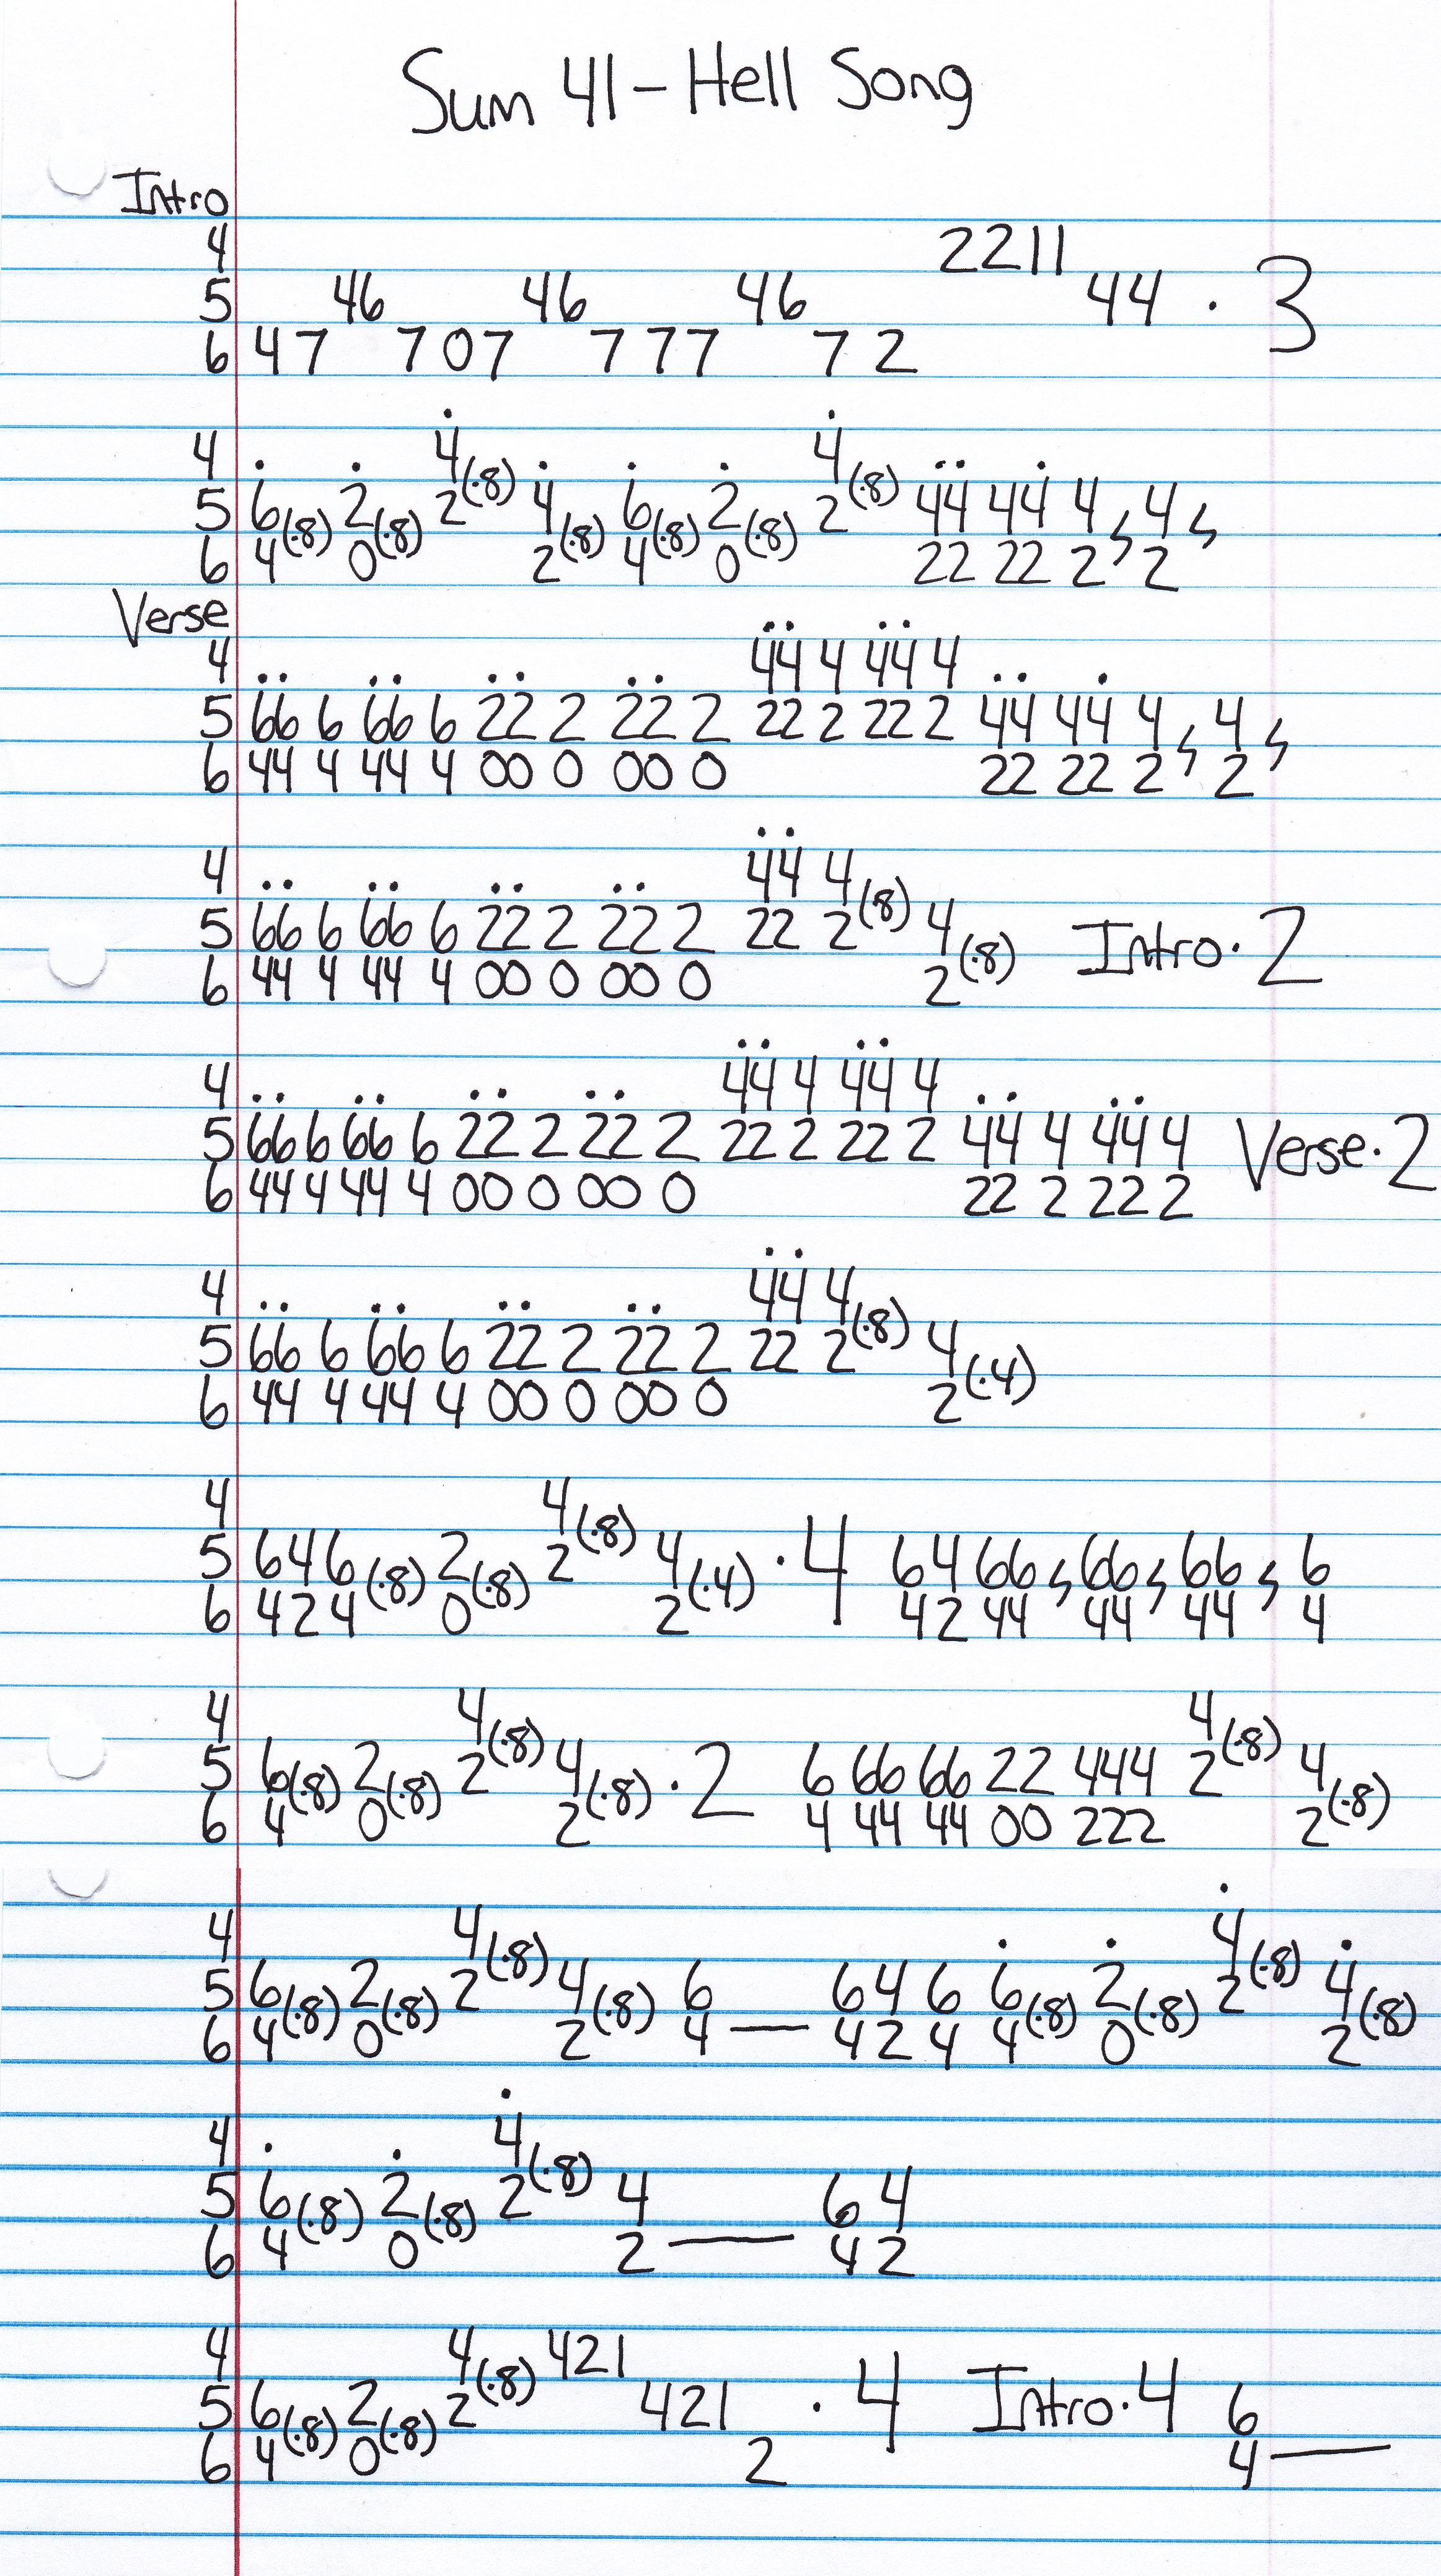 Sum 41 - Hell Song
Intro
4 2211
5 46 46 46 44 · 3
6 47 707 777 72
4 4(·8) 4(·8)
5 6(·8) 2(·8) 2 4(·8) 6(·8) 2(·8) 2 44 44 4 , 4 ,
6 4 0 2 4 0 22 22 2 2
Verse
4 44 4 44 4
5 66 6 66 6 22 2 22 2 22 2 22 2 44 44 4 , 4 ,
6 44 4 44 4 00 0 00 0 22 22 2 2
4 44 4(·8)
5 66 6 66 6 22 2 22 2 22 2 4(·8) Intro · 2
6 44 4 44 4 00 0 00 0 2
4 44 4 44 4
5 66 6 66 6 22 2 22 2 22 2 22 2 44 4 44 4 Verse · 2
6 44 4 44 4 00 0 00 0 22 2 22 2
4 44 4(·8)
5 66 6 66 6 22 2 22 2 22 2 4(·4)
6 44 4 44 4 00 0 00 0 2
4 4(·8)
5 646(·8) 2(·8) 2 4(·4) · 4 6466 , 66 , 66 , 6
6 424 0 2 4244 44 44 4
4 4(·8) 4(·8)
5 6(·8) 2(·8) 2 4(·8) · 2 6 66 66 22 444 2 4(·8)
6 4 0 2 4 44 44 00 222 2
4 4(·8) 4(·8)
5 6(·8) 2(·8) 2 4(·8) 6 64 6 6(·8) 2(·8) 2 4(·8)
6 4 0 2 4 — 42 4 4 0 2
4 4(·8)
5 6(·8) 2(·8) 2 4 64
6 4 0 2 — 42
4 4(·8) 421
5 6(·8) 2(·8) 2 421 · 4 Intro · 4 6
6 4 0 2 4 —